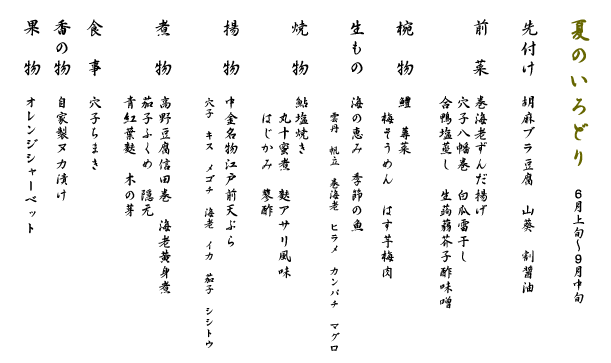 夏のいろどり 6月上旬〜9月中旬
先付け 胡麻プラ豆腐 山葵 割醤油
前菜 巻海老ずんだ揚げ
穴子八幡巻 白瓜雷干し
合鴨塩蒸し 生蒟蒻芥子酢味噌
椀物 鱧 蓴菜
梅そうめん はす芋梅肉
生もの 海の恵み 季節の魚
雲丹 帆立 巻海老 ヒラメ カンパチ マグロ
焼物 鮎塩焼き
丸十蜜煮 麩アサリ風味
はじかみ 蓼酢
揚物 中金名物江戸前天ぷら
穴子 キス メゴチ 海老 イカ 茄子 シシトウ
煮物 高野豆腐信田巻 海老黄身煮
茄子ふくめ 隠元
青紅葉麩 木の芽
食事 穴子ちまき
香の物 自家製ヌカ漬け
果物 オレンジシャーベット